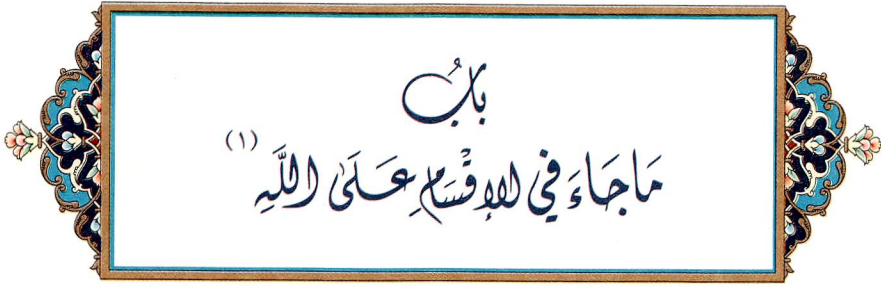 بَابُ
مَا جَاءَ فِي الإِقْسَامِ عَلَى اللَّهِ (١)